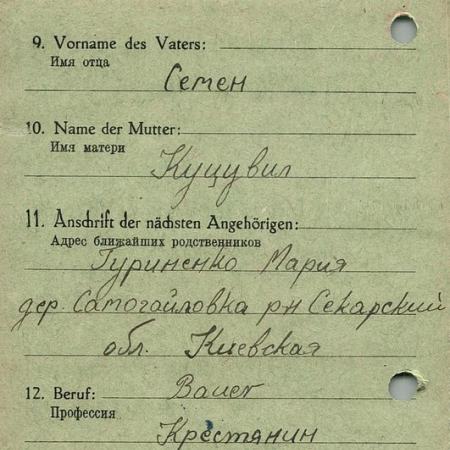 9. Vorname des Vaters:
Имя отца
Семен
10. Name der Mutter:
Имя матери
Куцувил
11. Anschrift der nächsten Angehörigen:
Адрес ближайших родственников
Гуриненко Мария
дер. Самогайловка р-н Секарский
обл. Киевская
12. Beruf: Bauer
Профессия
Крестянин